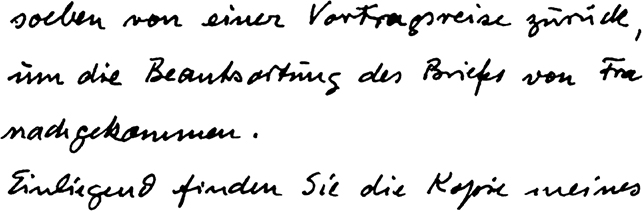 soeben von einer Vortragsreise zurück,
um die Beantwortung des Briefes von Fra
nachgekommen.
Einliegend finden Sie die Kopie meines